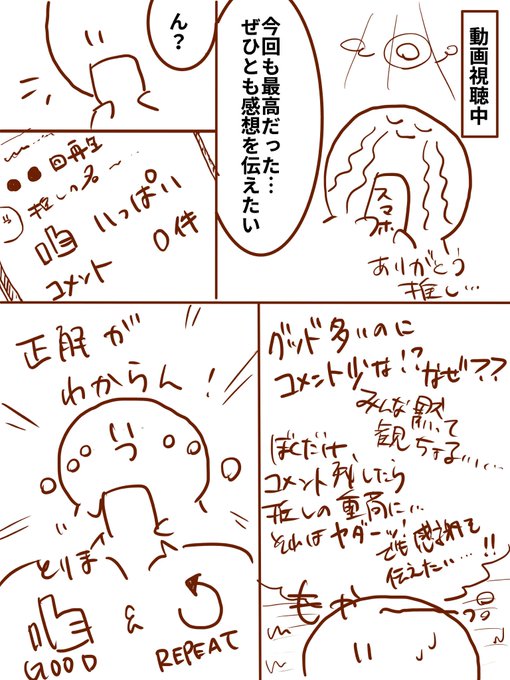 動画視聴中
今回も最高だった…
ぜひとも感想を伝えたい
スマホ
ありがとう
推し…
ん?
●●回再生
推しの名〜…
いっぱい
コメント 0件
グッド多いのに
コメント少な!?なぜ??
みんな黙って
観ちょる……
ぼくだけ、
コメント残したら
推しの重荷に…
それはヤダーッ!
でも感謝を
伝えたい……!!
もや
正解が
わからん!
とりま
GOOD
&
REPEAT